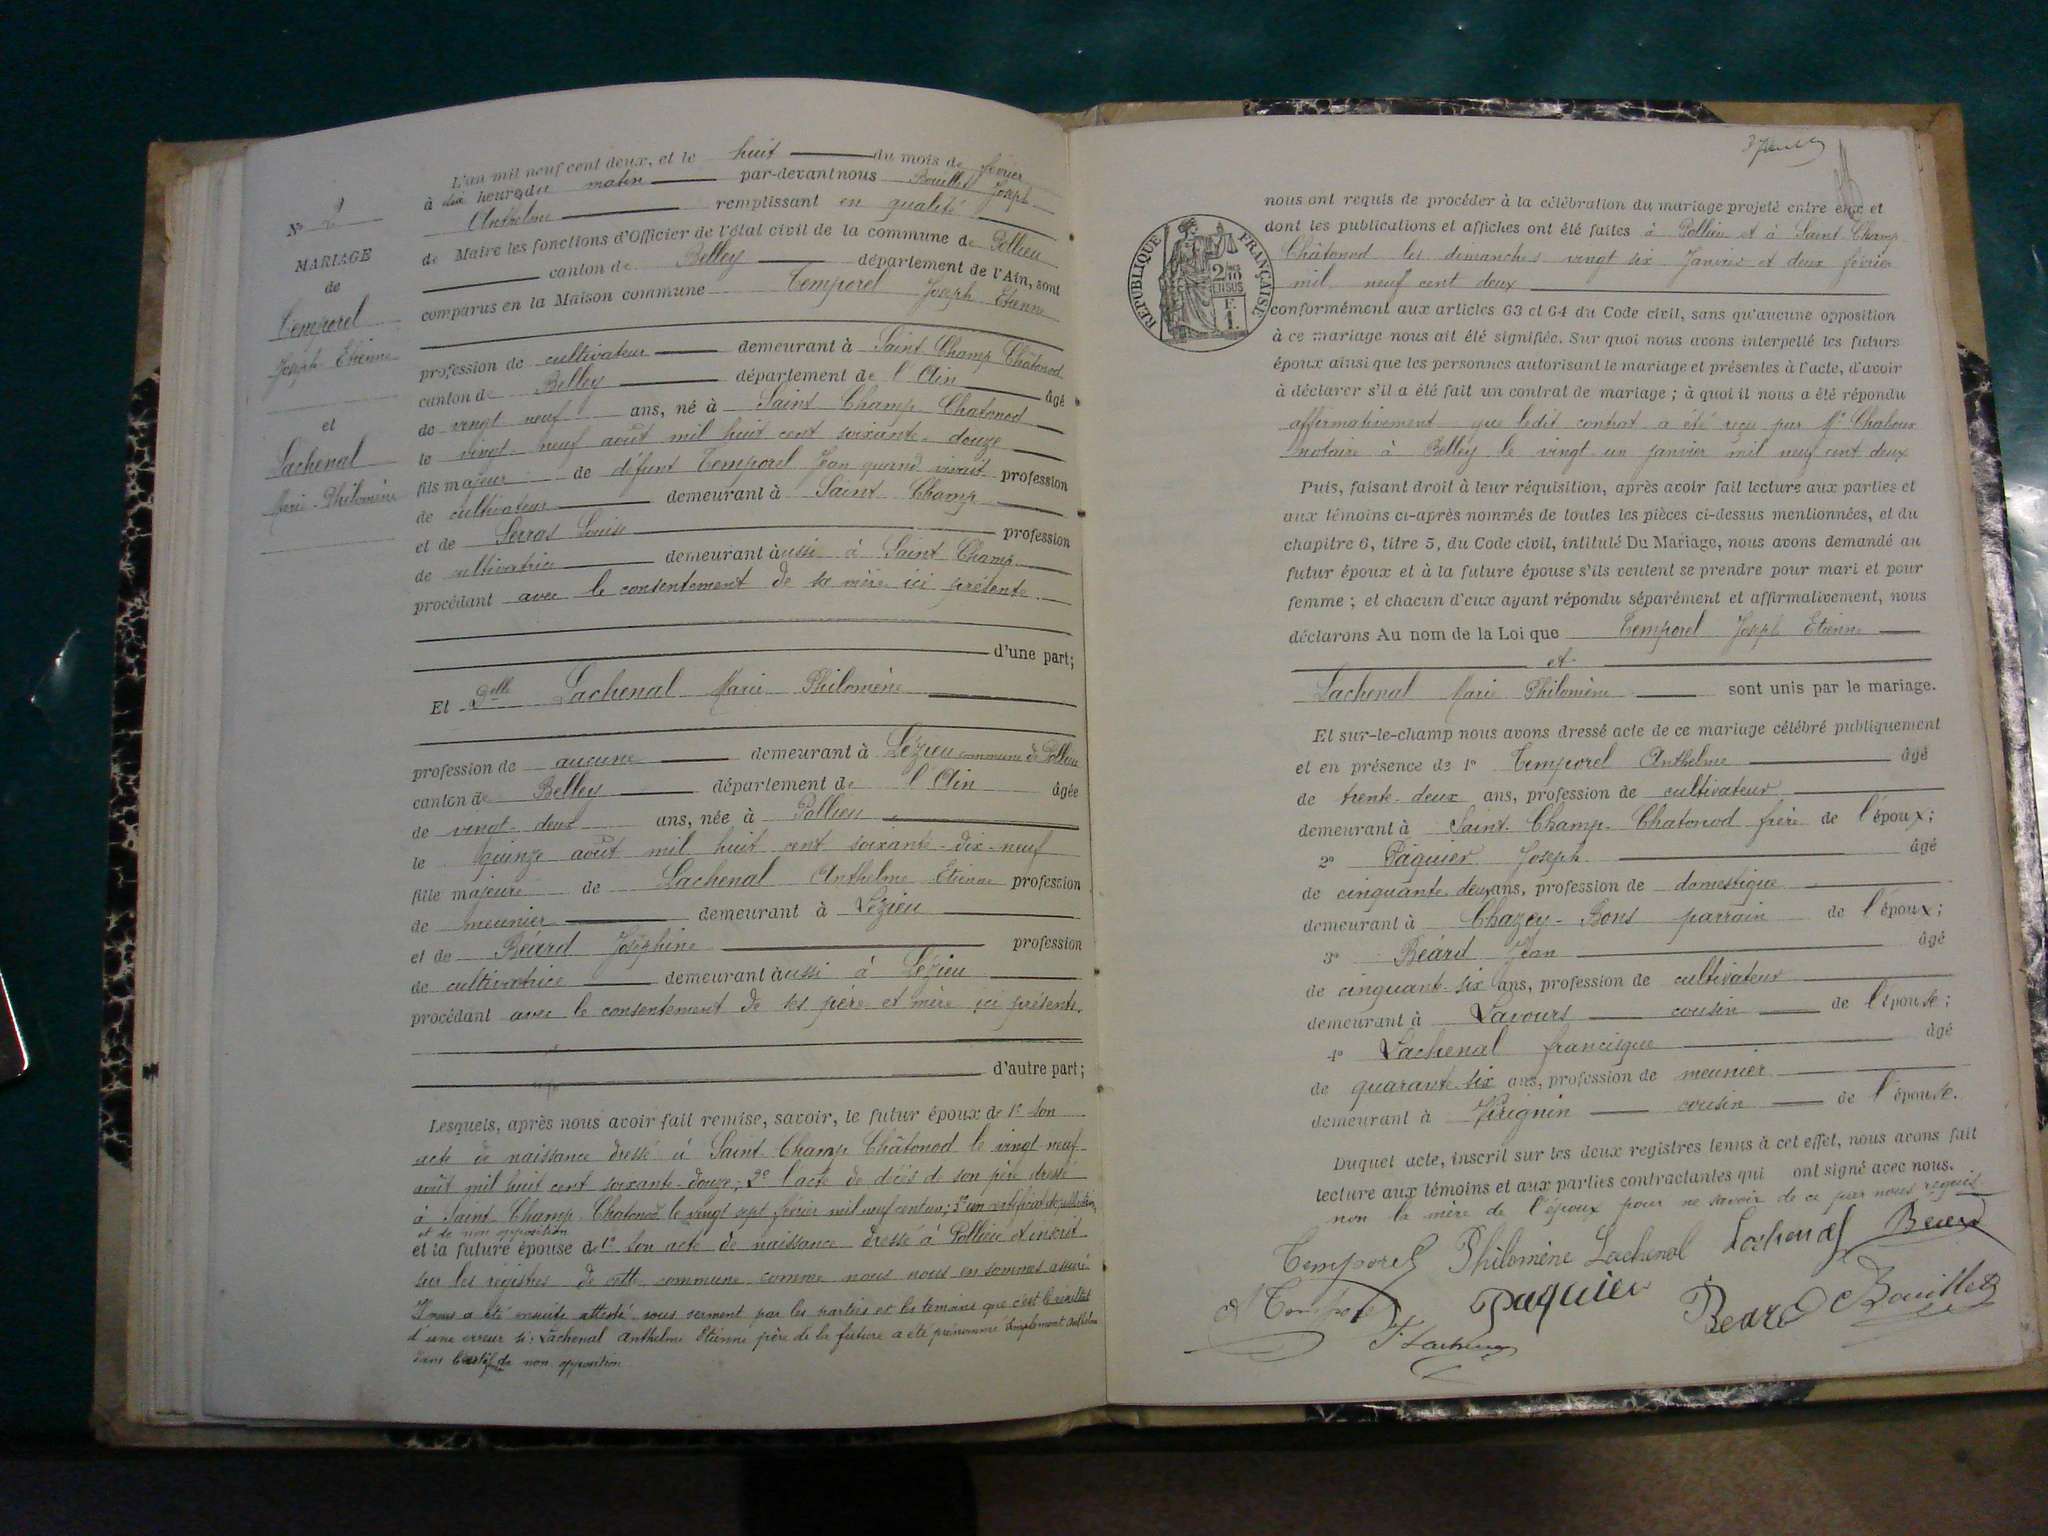 L'an mil neuf cent deux, et le huit du mois de février
à dix heures du matin par-devant nous Bouillet Joseph
Anthelme remplissant en qualité
de Maire les fonctions d'Officier de l'état civil de la commune de Pollieu
canton de Belley département de l'Ain, sont
comparus en la Maison commune Temporel Joseph Etienne
profession de cultivateur demeurant à Saint-Champ Châtonod
canton de Belley département de l'Ain âgé
de vingt neuf ans, né à Saint Champ Chatonod
le vingt-neuf août mil huit cent soixante-douze
fils majeur de défunt Temporel Jean quand vivait profession
de cultivateur demeurant à Saint Champ
et de Serras Louise profession
de cultivatrice demeurant aussi à Saint Champ
procédant avec le consentement de sa mère ici présente
d'une part;
Et Delle Lachenal Marie Philomène
profession de aucune demeurant à Lézieu commune de Pollieu
canton de Belley département de l'Ain âgée
de vingt-deux ans, née à Pollieu
le quinze août mil huit cent soixante-dix-neuf
fille majeure de Lachenal Anthelme Etienne profession
de meunier demeurant à Lézieu
et de Béard Joséphine profession
de cultivatrice demeurant aussi à Lézieu
procédant avec le consentement de ses père et mère ici présents
d'autre part;
Lesquels, après nous avoir fait remise, savoir, le futur époux de 1° son
acte de naissance dressé à Saint-Champ Châtonod le vingt neuf
août mil huit cent soixante-douze; 2° l'acte de décès de son père dressé
à Saint-Champ-Chatonod le vingt sept février mil neuf cent un; 3° un certificat de publication
et de non opposition
et la future épouse de 1° Son acte de naissance dressé à Pollieu et inscrit
sur les registres de cette commune comme nous nous en sommes assuré
Il nous a été ensuite attesté sous serment par les parties et les témoins que c'est le résultat
d'une erreur si Lachenal Anthelme Etienne père de la future a été prénommé simplement Anthelme
dans le certif de non opposition
N° 2
MARIAGE
de
Temporel
Joseph Etienne
et
Lachenal
Marie-Philomène
RÉPUBLIQUE FRANÇAISE
2/10 EN SUS
1 F.
nous ont requis de procéder à la célébration du mariage projeté entre eux et
dont les publications et affiches ont été faites à Pollieu et à Saint-Champ
Châtonod les dimanches vingt six Janvier et deux février
mil neuf cent deux
conformément aux articles 63 et 64 du Code civil, sans qu'aucune opposition
à ce mariage nous ait été signifiée. Sur quoi nous avons interpellé les futurs
époux ainsi que les personnes autorisant le mariage et présentes à l'acte, d'avoir
à déclarer s'il a été fait un contrat de mariage; à quoi il nous a été répondu
affirmativement que ledit contrat a été reçu par Me Chaboux
notaire à Belley le vingt-un janvier mil neuf cent deux
Puis, faisant droit à leur réquisition, après avoir fait lecture aux parties et
aux témoins ci-après nommés de toutes les pièces ci-dessus mentionnées, et du
chapitre 6, titre 5, du Code civil, intitulé Du Mariage, nous avons demandé au
futur époux et à la future épouse s'ils veulent se prendre pour mari et pour
femme; et chacun d'eux ayant répondu séparément et affirmativement, nous
déclarons Au nom de la Loi que Temporel Joseph Etienne
et
Lachenal Marie Philomène sont unis par le mariage.
Et sur-le-champ nous avons dressé acte de ce mariage célébré publiquement
et en présence de 1° Temporel Anthelme âgé
de trente-deux ans, profession de cultivateur
demeurant à Saint-Champ-Chatonod frère de l'époux;
2° Pâquier Joseph âgé
de cinquante deux ans, profession de domestique
demeurant à Chazey-Bons parrain de l'époux;
3° Béard Jean âgé
de cinquante-six ans, profession de cultivateur
demeurant à Lavours cousin de l'épouse;
4° Lachenal francisque âgé
de quarante-six ans, profession de meunier
demeurant à Virignin cousin de l'épouse.
Duquel acte, inscrit sur les deux registres tenus à cet effet, nous avons fait
lecture aux témoins et aux parties contractantes qui ont signé avec nous.
non la mère de l'époux pour ne savoir de ce par nous requis
Temporel Philomène Lachenal Lachenal Beard
A Temporel Paquier Beard Bouillet
F Lachenal